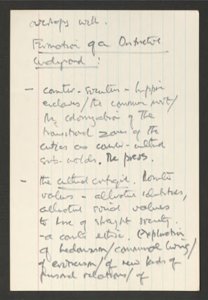 perhaps well.
Formation of a Distinctive
Underground :
- counter-Society - hippie
enclaves / the commune mvt /
the colonization of the
transitional zones of the
cities as counter-cultural
strongholds. The press.
- the cultural critique. Counter
values - alternative identities,
alternative social values
to those of straight society.
- a counter ethic. Exploration
of hedonism / communal living /
of eroticism / of new kinds of
personal relations / of